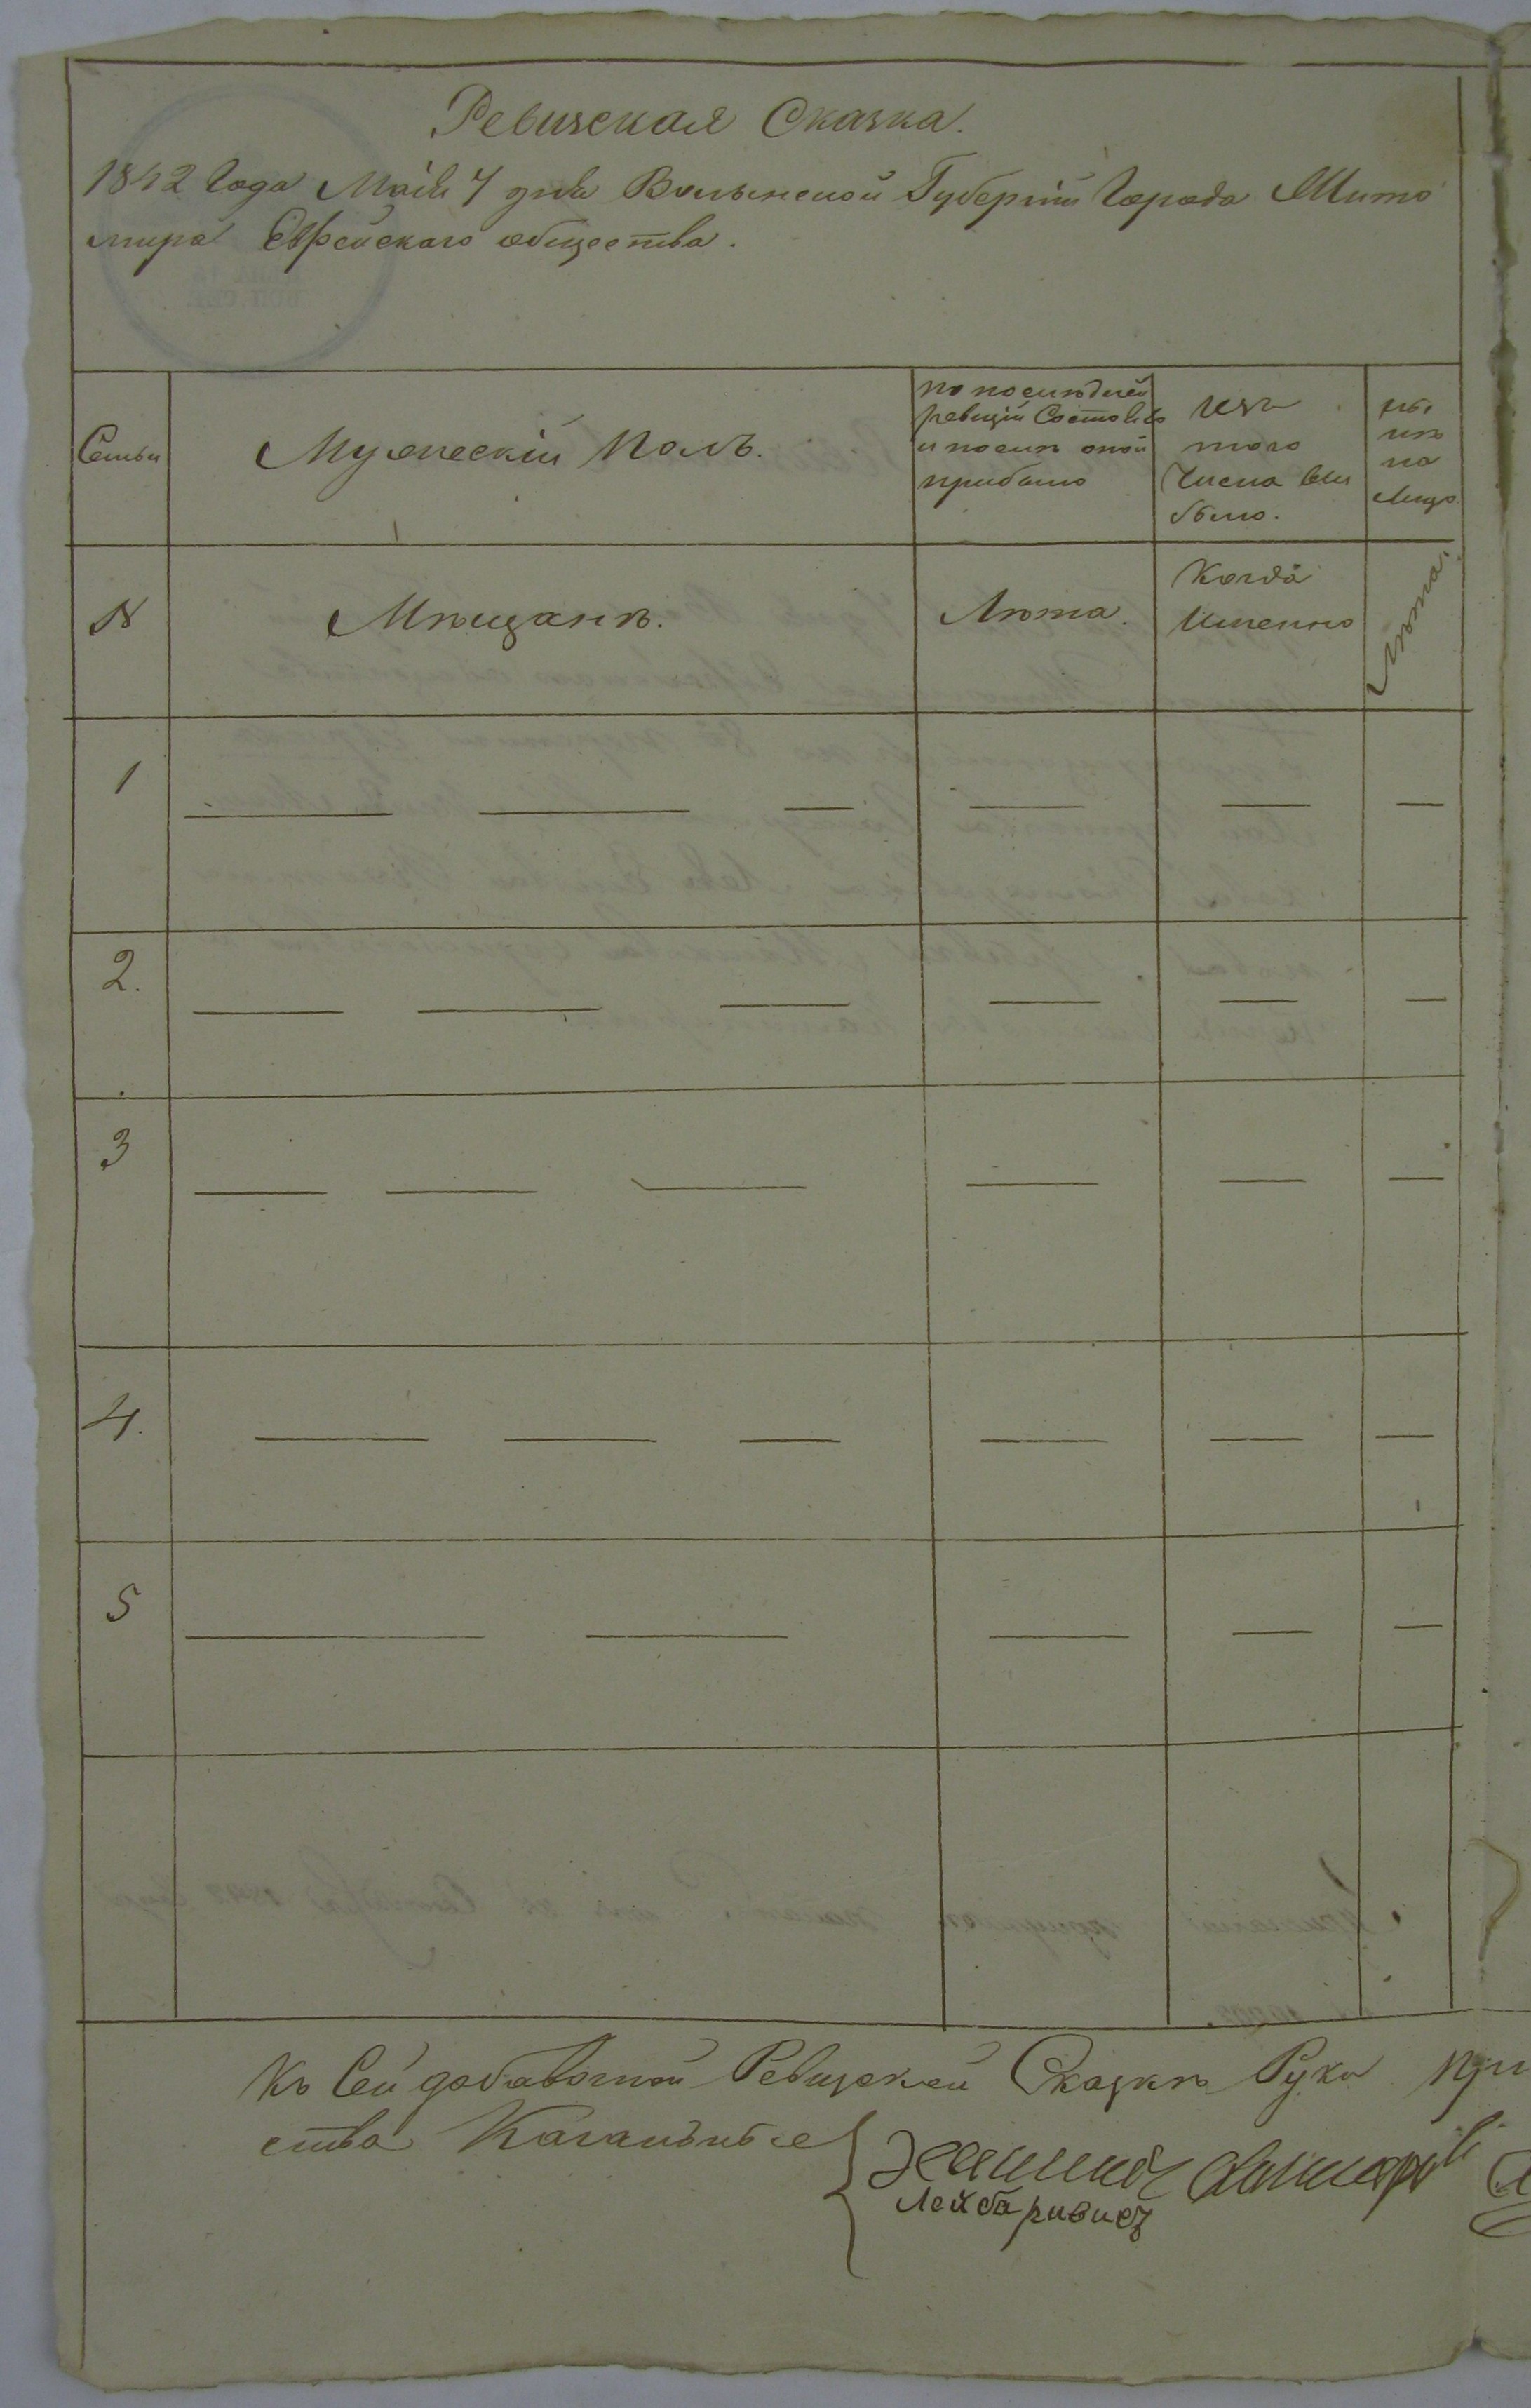 Ревизская Сказка.
1842 Года Маія 7 дня Волынской Губерніи Города Жито
мира Еврейскаго общества.
Семьи
Мужескій полъ.
по послѣдней
ревизіи Состояло
и послѣ оной
прибыло
изъ
того
Числа вы
было.
ны
нѣ
на
Лицо.
№
Мѣщанѣ.
Лѣта.
Когда
Именно
Лѣта.
1
2.
3
4.
5
Къ Сей добавочной Ревизской Сказкѣ Руки при
ства Кагальные
Лейба ривиез